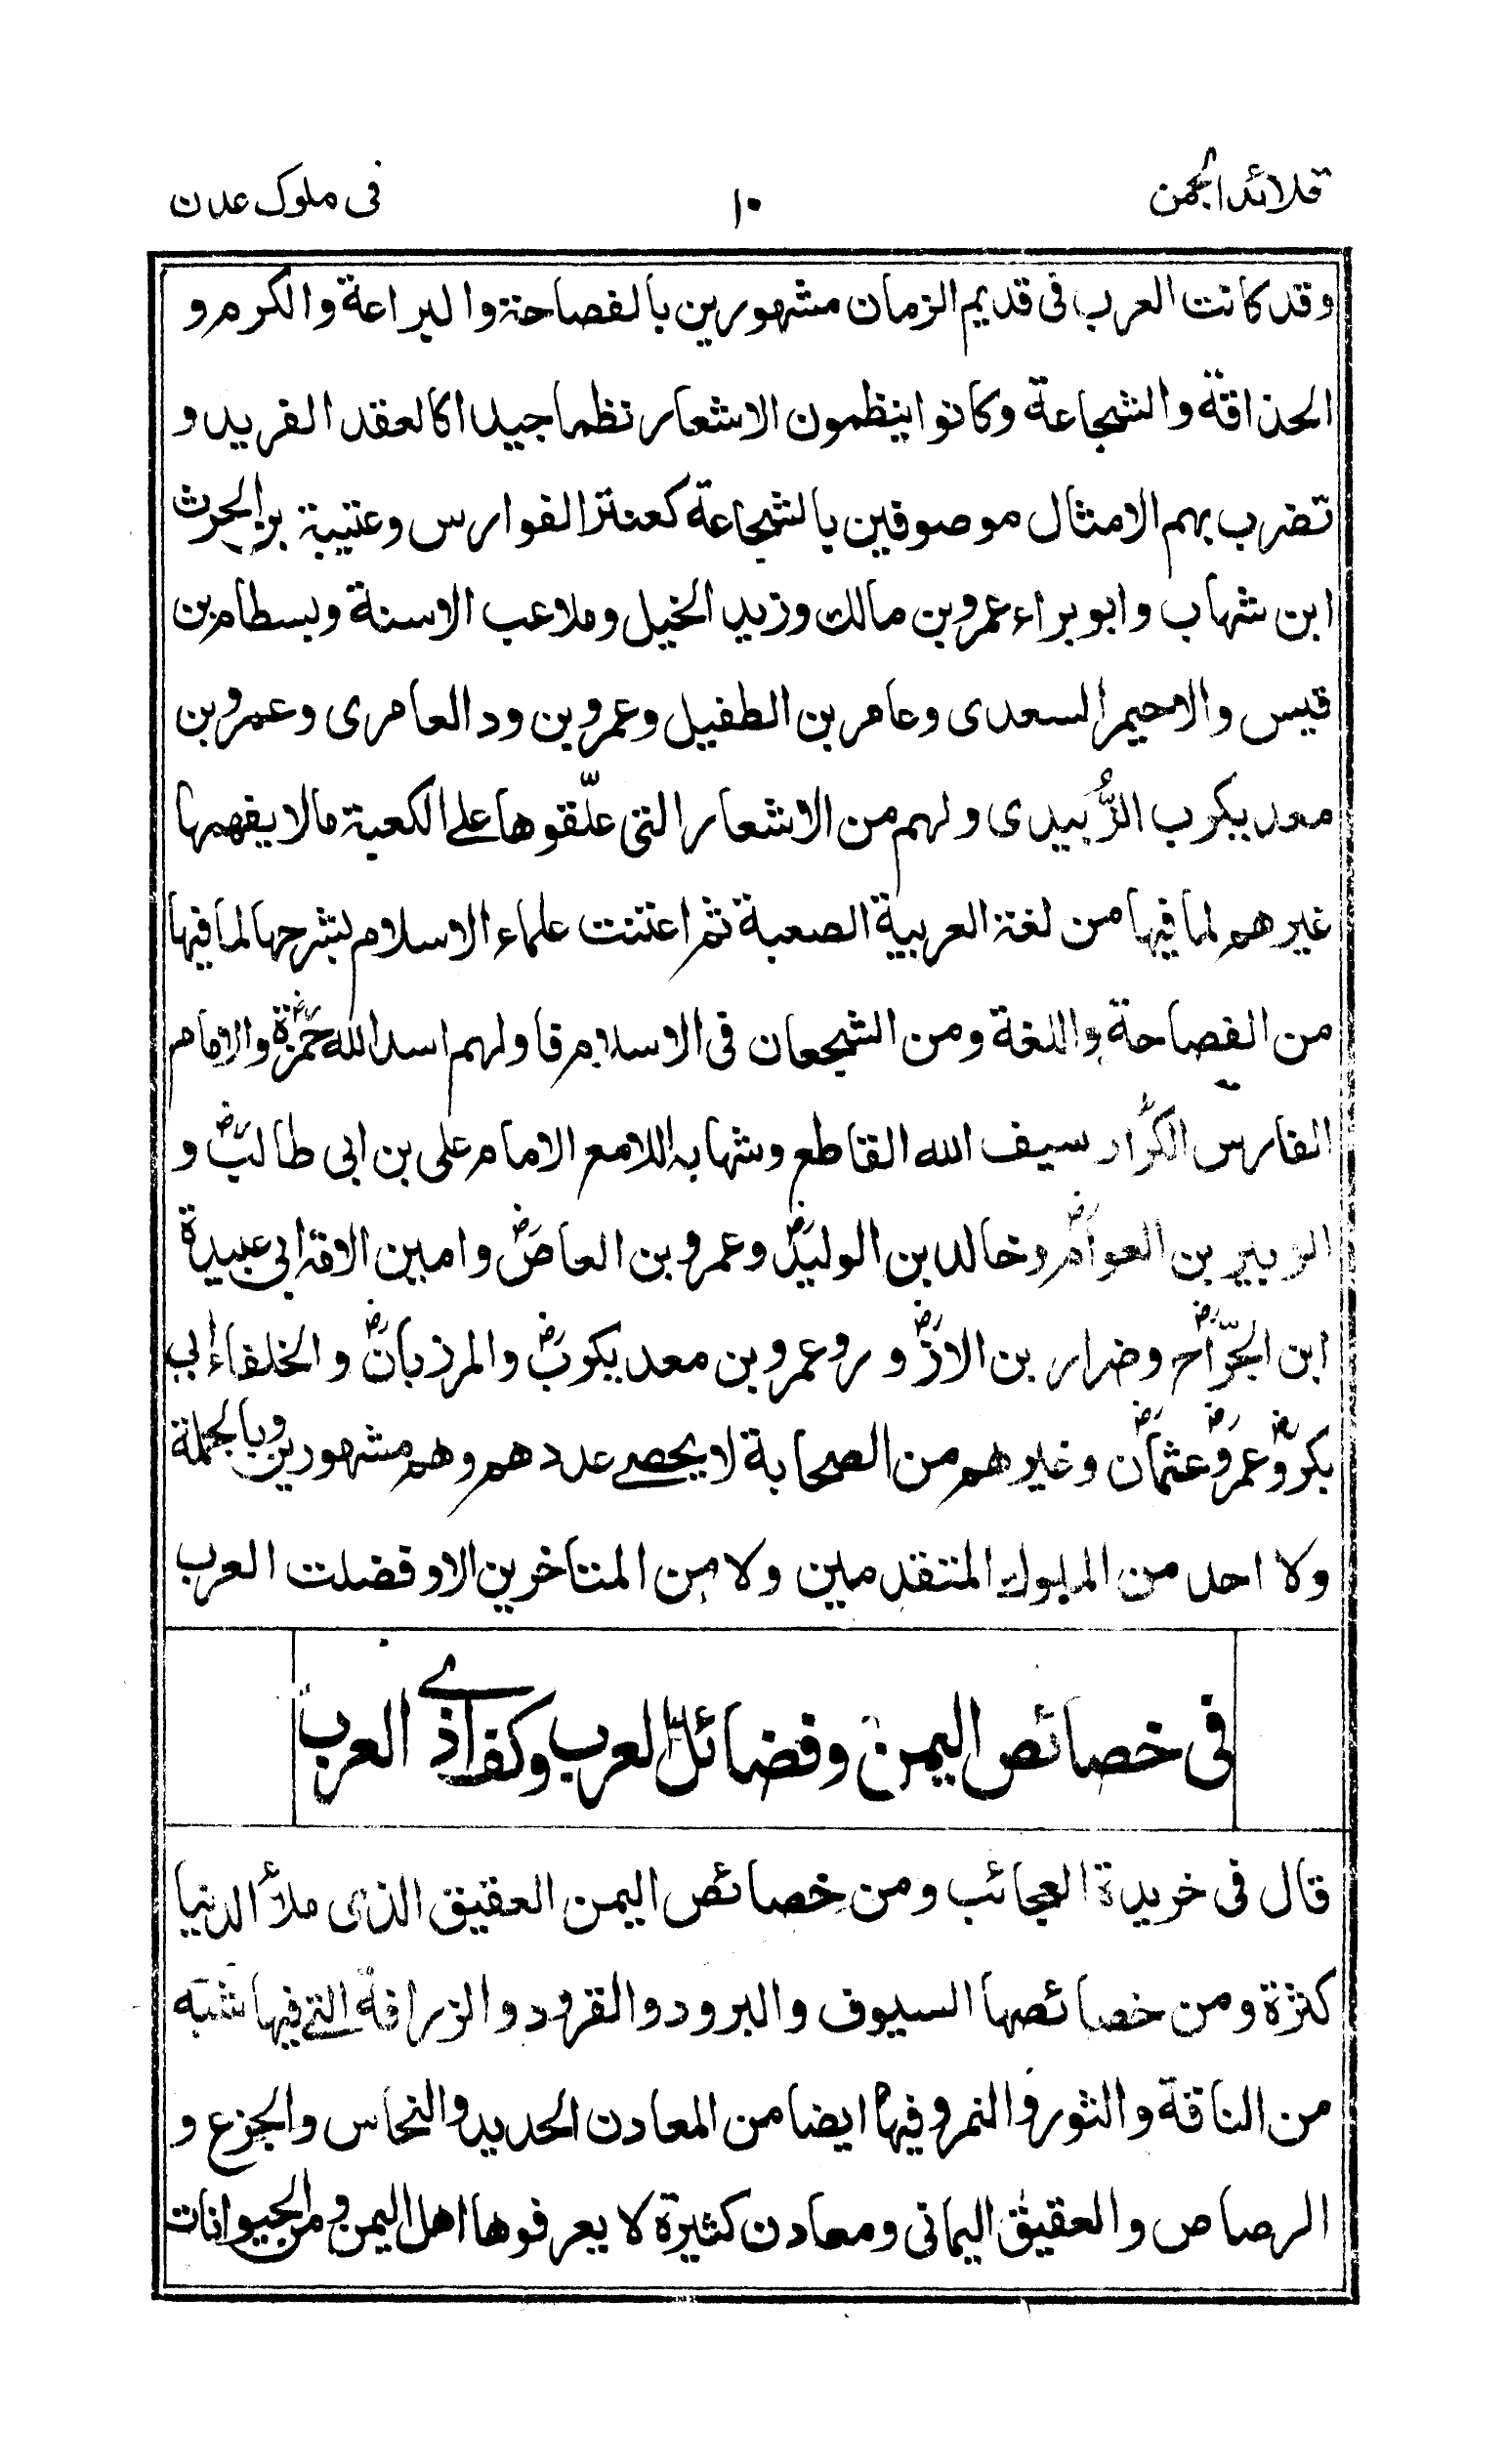 قلائد الجمن
١٠
فى ملوك عدن
وقد كانت العرب فى قديم الزمان مشهورين بالفصاحة والبراعة والكرم و
الحذاقة والشجاعة وكانوا ينظمون الاشعار نظما جيدا كالعقد الفريد و
تضرب بهم الامثال موصوفين بالشجاعة كعنتر الفوارس وعتيبة بن الحرث
ابن شهاب وابو براء عمرو بن مالك وزيد الخيل وملاعب الاسنة وبسطام بن
قيس والاحيمر السعدى وعامر بن الطفيل وعمرو بن ود العامرى وعمرو بن
معديكرب الزُّبيدى ولهم من الاشعار التى علّقوها على الكعبة مالا يفهمها
غيرهم لما فيها من لغة العربية الصعبة ثم اعتنت علماء الاسلام بشرحها لما فيها
من الفصاحة واللغة ومن الشجعان فى الاسلام فاولهم اسد الله حمزةؓ والامام
الفارس الكرّار سيف الله القاطع وشهابه اللامع الامام على بن ابى طالبؓ و
الزبير بن العوامؓ وخالد بن الوليدؓ وعمرو بن العاصؓ وامين الامة ابى عبيدة
ابن الجرّاحؓ وضرار بن الازؓور وعمرو بن معديكربؓ والمرزبانؓ والخلفاء إبى
بكرؓ وعمرؓ وعثمانؓ وغيرهم من الصحابة لا يحصى عددهم وهم مشهورين وبالجملة
ولا احد من الملوك المتقدمين ولا من المتاخرين الا وفضلت العرب
فى خصائص اليمن وفضائل العرب العرب
قال فى خريدة العجائب ومن خصائص اليمن العقيق الذى ملأ الدنيا
كثرة ومن خصائصها السيوف والبرود والقرود والزرافة التى فيها شبه
من الناقة والثور والنمر وفيها ايضا من المعادن الحديد والنحاس والجزع و
الرصاص والعقيق اليمانى ومعادن كثيرة لا يعرفوها اهل اليمن ومن الحيوانات